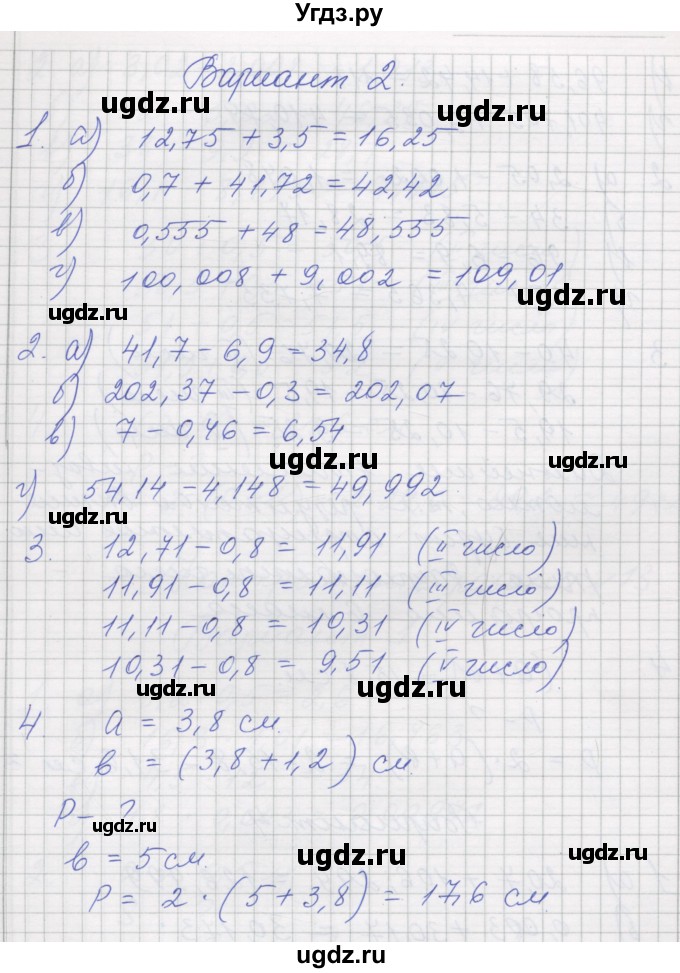 Угдз.ру
Вариант 2.
ugdz.ru
ugdz.ru
1. а) 12,75 + 3,5 = 16,25
б) 0,7 + 41,72 = 42,42
ugdz.ru
ugdz.ru
в) 0,555 + 48 = 48,555
г) 100,008 + 9,002 = 109,01
ugdz.ru
ugdz.ru
2. а) 41,7 - 6,9 = 34,8
б) 202,37 - 0,3 = 202,07
в) 7 - 0,46 = 6,54
ugdz.ru
ugdz.ru
г) 54,14 - 4,148 = 49,992
ugdz.ru
3. 12,71 - 0,8 = 11,91 (II число)
11,91 - 0,8 = 11,11 (III число)
11,11 - 0,8 = 10,31 (IV число)
10,31 - 0,8 = 9,51 (V число)
ugdz.ru
ugdz.ru
4. a = 3,8 см.
в = (3,8 + 1,2) см.
P - ?
ugdz.ru
в = 5 см.
ugdz.ru
ugdz.ru
P = 2 · (5 + 3,8) = 17,6 см.
ugdz.ru